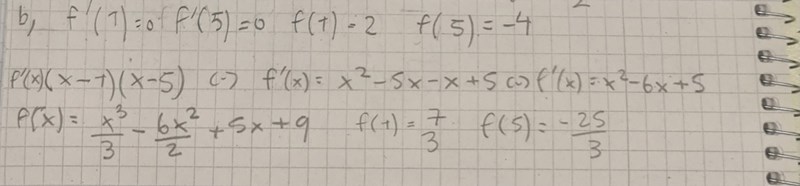 b, f'(1)=0 f'(5)=0 f(1)=2 f(5)=-4
f'(x)(x-1)(x-5) <-> f'(x)= x²-5x-x+5 <-> f'(x)=x²-6x+5
f(x)= x³/3 - 6x²/2 +5x+9 f(1)= 7/3 f(5)= -25/3